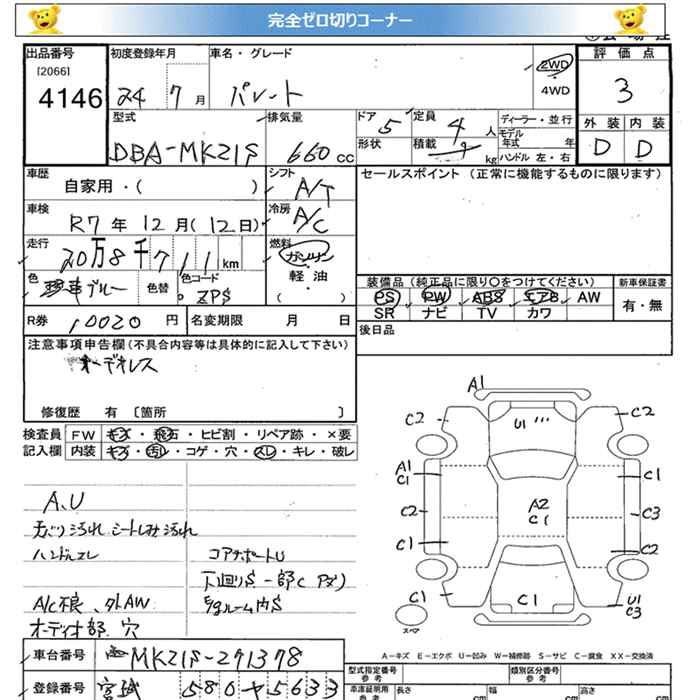 完全ゼロ切りコーナー
出品番号 初度登録年月 車名・グレード 評価点
[2066]
4146 24 7月 パレット 2WD 4WD 3
型式 排気量 ドア 5 定員 4人 ディーラー・並行 外装 内装
DBA-MK21S 660cc 形状 積載 kg モデル年式 年 ハンドル 左・右 D D
車歴 シフト セールスポイント(正常に機能するものに限ります)
自家用・( ) A/T
車検 R7年12月(12日) 冷房 A/C
走行 20万8千711km 燃料 ガソリン 軽・油
色 ブルー 色替 色コード ZPS ( ・ )
装備品(純正品に限り○をつけてください) 新車保証書
PS PW ABS エアB AW 有・無
SR ナビ TV カワ
R券 10020円 名変期限 月 日 後日品
注意事項申告欄(不具合内容等は具体的に記入して下さい)
オーデオレス
修復歴 有 〔箇所 〕
検査員 FW キズ・飛石・ヒビ割・リペア跡・×要
記入欄 内装 キズ・汚レ・コゲ・穴・スレ・キレ・破レ
A1
C2 U1 C2
A1
C1 C1
C2 A2 C3
C1
C1 C2
C1 C1 U1
C3
スペア
A、U
カバリ汚れ シートしみ汚れ
ハンドルスレ コアサポートU
下廻りS
A/C不良、外AW ルーム内S
オーディオ部 穴
A-キズ E-エクボ U-凹み W-補修跡 S-サビ C-腐食 XX-交換済
車台番号 MK21S-271378 型式指定番号 類別区分番号
登録番号 宮城 580 5633 参考 長さ cm 幅 cm 高さ cm